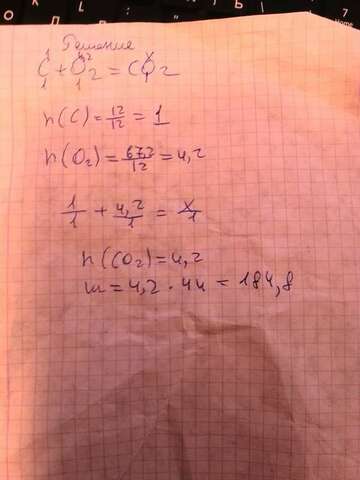 Решение
1 4,2 x
C + O2 = CO2
1 1
n(C) = 12/12 = 1
n(O2) = 67,2/12 = 4,2
1/1 + 4,2/1 = x/1
n(CO2) = 4,2
m = 4,2 · 44 = 184,8